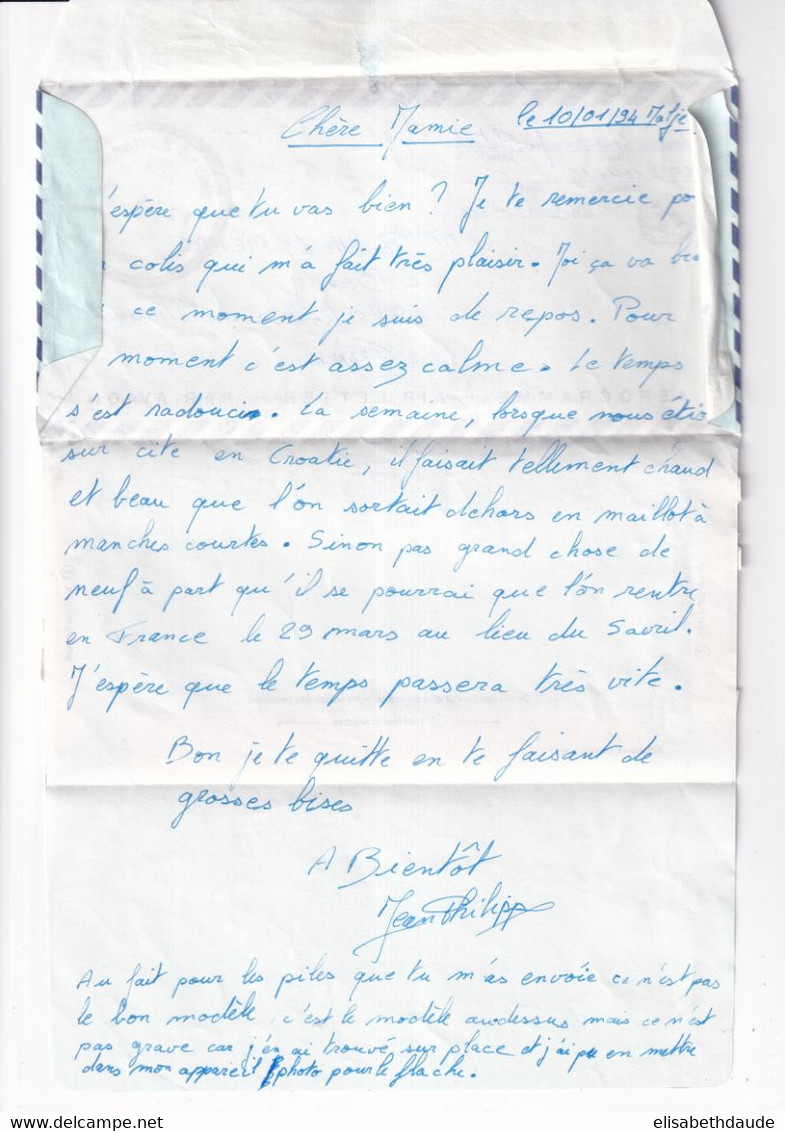 le 10/01/94
Chère Mamie
'espère que tu vas bien ? Je te remercie po
colis qui m'a fait très plaisir. Moi ça va
ce moment je suis de repos. Pour
moment c'est assez calme. Le temps
s'est radouci. La semaine, lorsque nous étio
sur cite en Croatie, il faisait tellement chaud
et beau que l'on sortait dehors en maillot à
manches courtes. Sinon pas grand chose de
neuf à part qu'il se pourrai que l'on rentre
en France le 29 mars au lieu du 5 avril.
J'espère que le temps passera très vite.
Bon je te quitte en te faisant de
grosses bises
A Bientôt
Jean Philipp
Au fait pour les piles que tu m'as envoie ce n'est pas
le bon modèle, c'est le modèle audessus mais ce n'est
pas grave car j'en ai trouvé sur place et j'ai pu en mettre
dans mon appareil photo pour le flache.
AEROGRAMME AIR LETTER PAR AVION
elisabethdaude